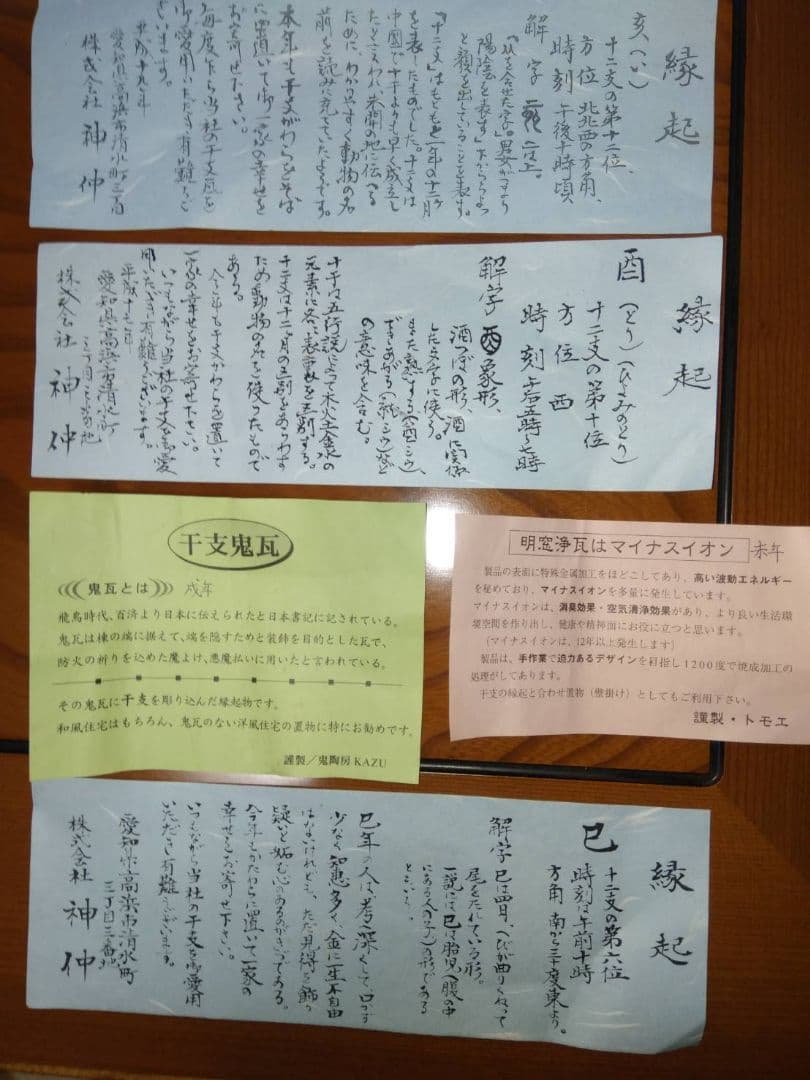 縁起
亥(い)
十二支の第十二位、
方位 北北西の方角、
時刻 午後十時頃
解字
陽陰を表す
と顔を出していることを表す。
「十二支」はもともと一年の十二ヶ月
を表したものでした。十二支は
中国で十干よりも早く成立し
たといわれ、未開の地に伝へる
ために、わかりやすく動物の名
前を読みに充てていたようです。
本年も干支がわらをそば
に置いて御一家の幸せを
お寄せ下さい。
毎度乍ら当社の干支瓦を
御愛用いただき有難うご
ざいます。
平成十九年
愛知県高浜市清水町三丁目
株式会社 神仲
縁起
酉(とり)(ひよみのとり)
十二支の第十位
方位 西
時刻 午后五時〜七時
解字 象形、
酒つぼの形、酒に関係
した文字に使う。
また熟する(酋シウ)、
できあがる(就シウ)など
の意味を含む。
十干は五行説によって木火土金水の
元素に各々表裏を区別する。
十二支は十二ヶ月の区別をあらわす
ため動物の名を使ったもので
ある。
今年も干支かわらを置いて
一家の幸せをお寄せ下さい。
いつもながら当社の干支を御愛
用いただき有難うございます。
平成十七年
愛知県高浜市清水町
三丁目三番地
株式会社 神仲
干支鬼瓦
鬼瓦とは 戌年
飛鳥時代、百済より日本に伝えられたと日本書記に記されている。
鬼瓦は棟の端に据えて、端を隠すためと装飾を目的とした瓦で、
防火の祈りを込めた魔よけ、悪魔払いに用いたと言われている。
その鬼瓦に干支を彫り込んだ縁起物です。
和風住宅はもちろん、鬼瓦のない洋風住宅の置物に特にお勧めです。
謹製/鬼陶房 KAZU
明窓浄瓦はマイナスイオン
製品の表面に特殊金属加工をほどこしてあり、高い波動エネルギー
を秘めており、マイナスイオンを多量に発生しています。
マイナスイオンは、消臭効果・空気清浄効果があり、より良い生活環
境空間を作り出し、健康や精神面にお役に立つと思います。
(マイナスイオンは、12年以上発生します)
製品は、手作業で迫力あるデザインを目指し1200度で焼成加工の
処理がしてあります。
干支の縁起と合わせ置物(壁掛け)としてもご利用下さい。
謹製・トモエ
縁起
巳 十二支の第六位
時刻は午前十時
方角 南から三十度東より。
解字 巳は四月、へびが曲りくねって
尾をたれている形。
一説には巳は胎児(腹の中
にある人の子)の形である
という。
巳年の人は、考へ深くして、口かず
少なく知恵多く、金に一生不自由
はないけれども、ただ見得を飾り
疑いと妬む心のあるがきづである。
今年もかたわらに置いて一家の
幸せをお寄せ下さい。
いつもながら当社の干支を御愛用
いただき有難うございます。
愛知県高浜市清水町
三丁目三番地
株式会社 神仲